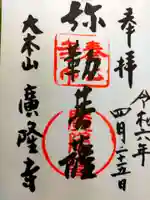 奉拝
令和六年
四月二十五日
弥勒菩薩
大本山
廣隆寺